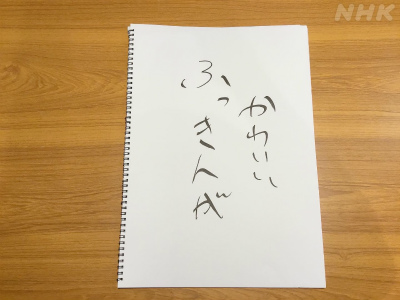 かわいい
ふっきんが
NHK